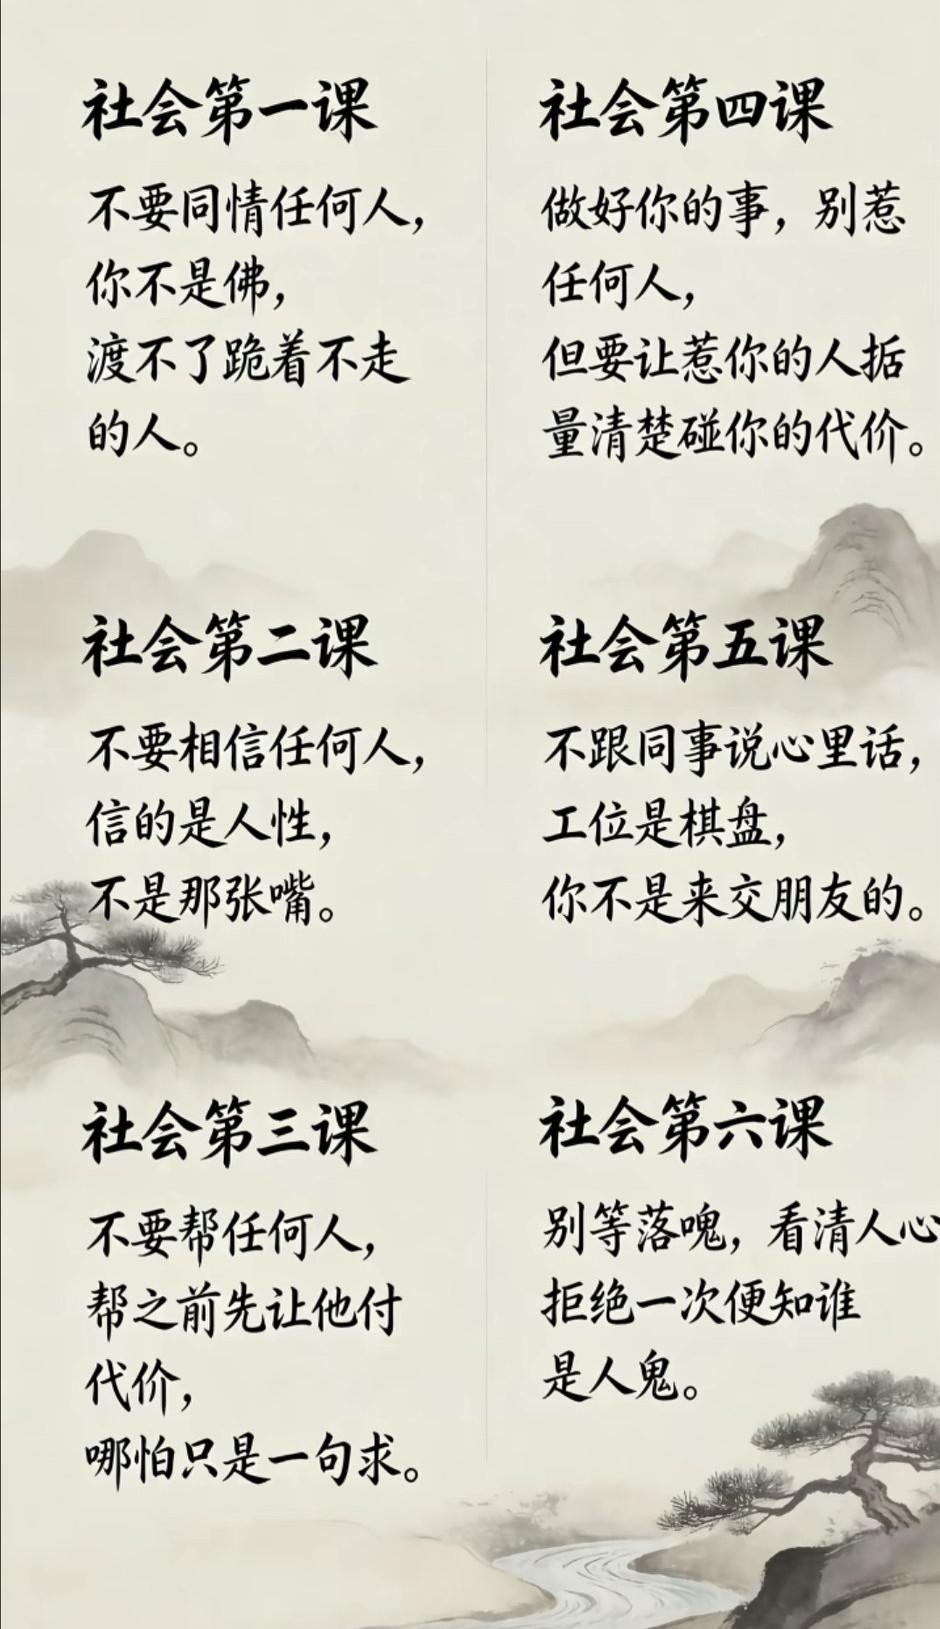 社会第一课
不要同情任何人，
你不是佛，
渡不了跪着不走
的人。
社会第二课
不要相信任何人，
信的是人性，
不是那张嘴。
社会第三课
不要帮任何人，
帮之前先让他付
代价，
哪怕只是一句求。
社会第四课
做好你的事，别惹
任何人，
但要让惹你的人掂
量清楚碰你的代价。
社会第五课
不跟同事说心里话，
工位是棋盘，
你不是来交朋友的。
社会第六课
别等落魄，看清人心
拒绝一次便知谁
是人鬼。